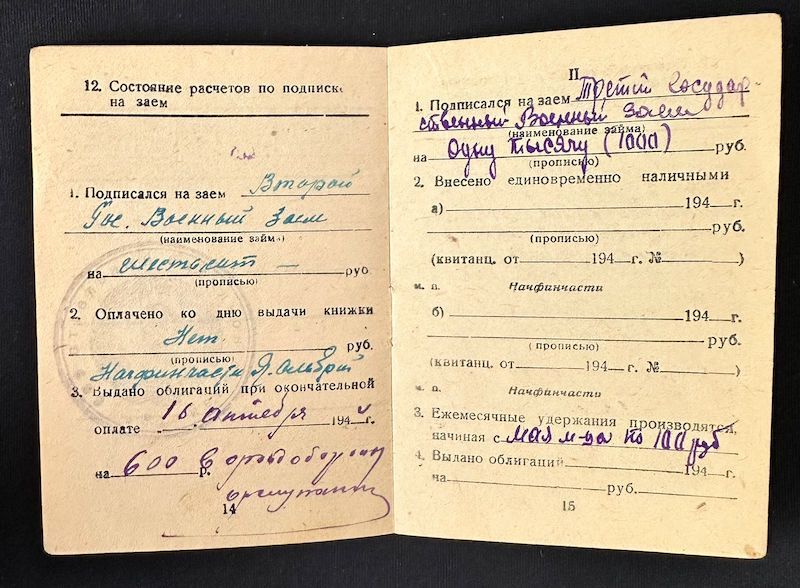 12. Состояние расчетов по подписке
на заем
1. Подписался на заем Второй
Гос. Военный Заем
(наименование займа)
на шестьсот — руб
(прописью)
2. Оплачено ко дню выдачи книжки
Нет руб.
(прописью)
Начфинчасти
3. Выдано облигаций при окончательной
оплате 16 октября 1944 г.
на 600 р.
14
II
1. Подписался на заем Третий Государ-
ственный Военный Заем
(наименование займа)
на Одну тысячу (1000) руб.
(прописью)
2. Внесено единовременно наличными
а) 194 г.
руб.
(прописью)
(квитанц. от 194 г. № )
м. п. Начфинчасти
б) 194 г.
руб.
(прописью)
(квитанц. от 194 г. № )
м. п. Начфинчасти
3. Ежемесячные удержания производятся,
начиная с мая м-ца по 100 руб
4. Выдано облигаций 194 г.
на руб.
15